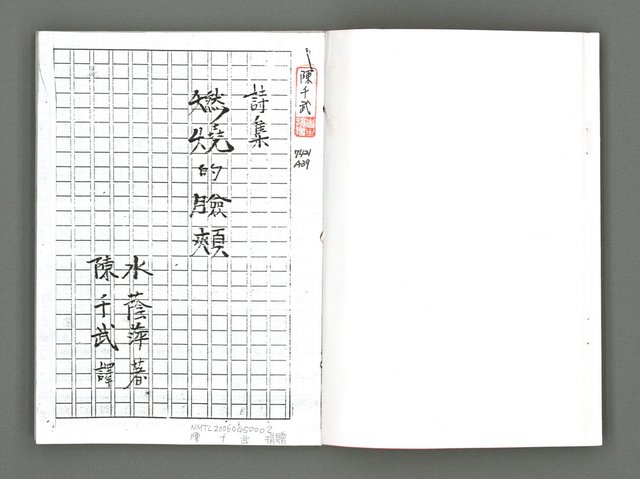 詩集
燃燒的臉頰
水蔭萍著
陳千武譯
陳千武
7421
A39
NMTL20060450002
陳千武捐贈